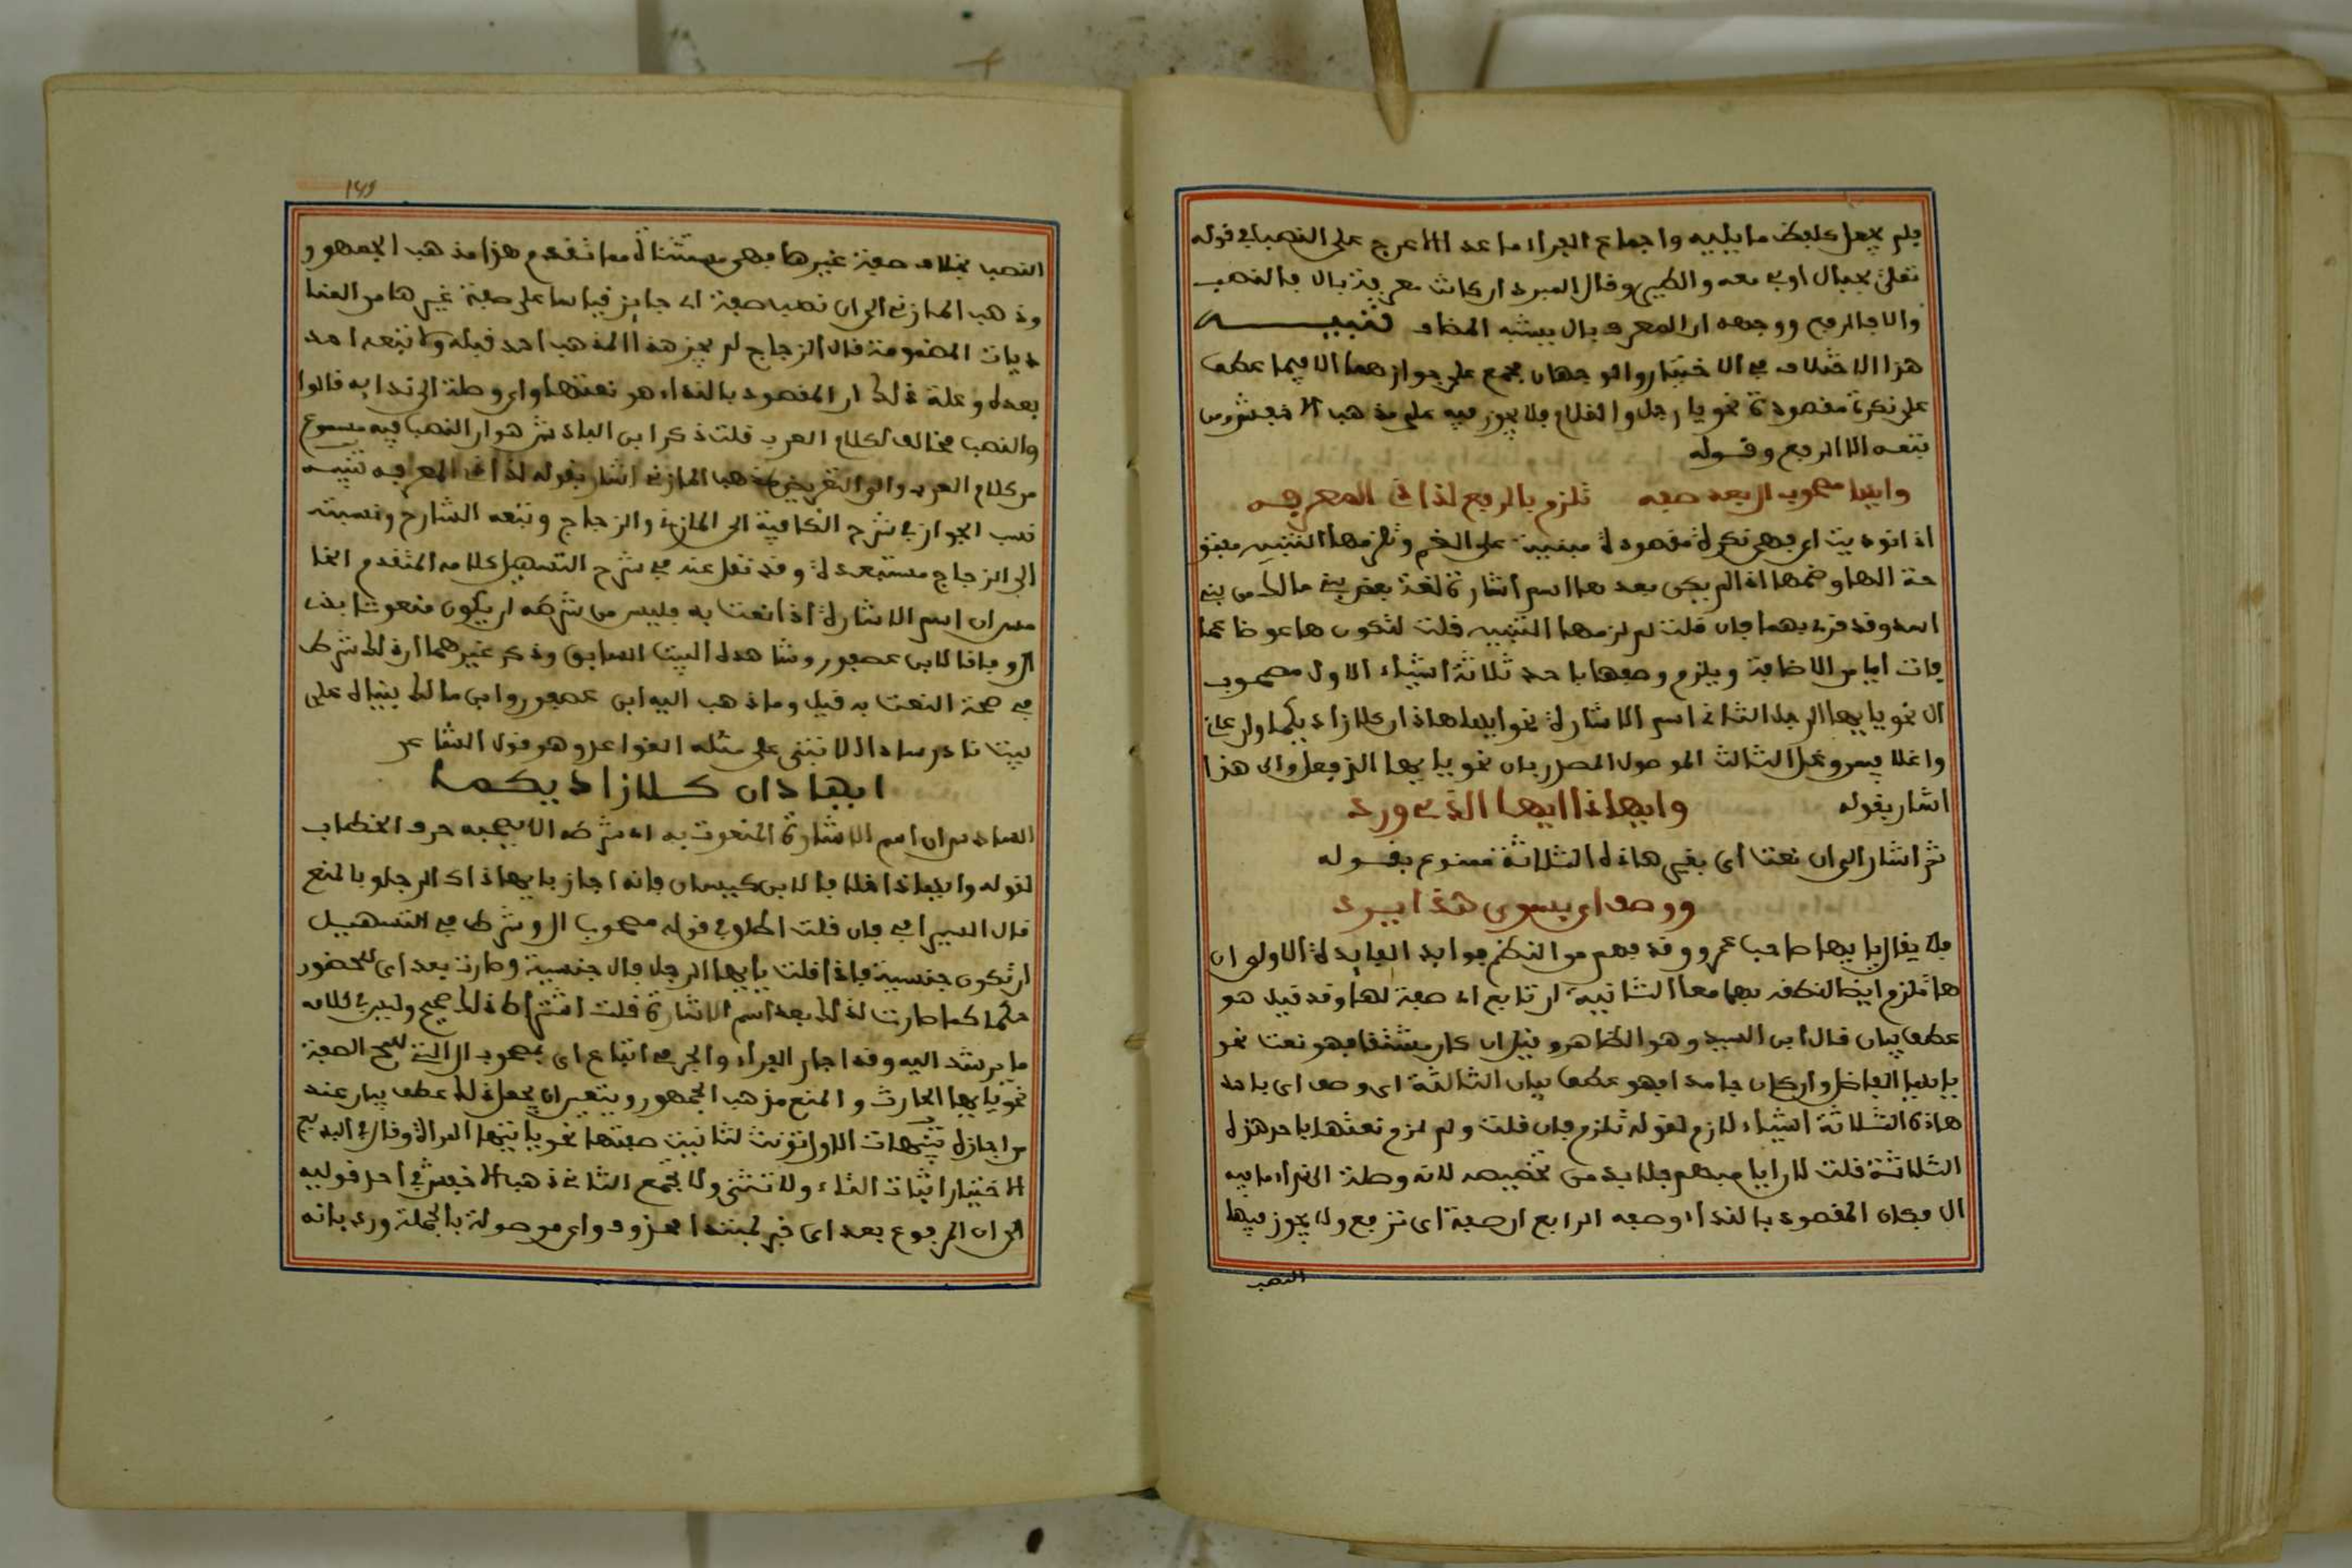 فلم يجعل كلفظ ما يليه واجماع القراء ما عدا الاعرج على النصب في قوله
تعلى يجبال اوبي معه والطير وقال المبرد ان كانت معرفة بال فالنصب
والا فالرفع ووجهه ان المعرف بال يشبه المضاف تنبيه
هذا الاختلاف في الاختيار والوجهان مجمع على جوازهما الا فيما عطف
على نكرة مقصودة نحو يا رجل والغلام فلا يجوز فيه على مذهب الاخفش ومن
تبعه الا الرفع وقوله
وايها مصحوب ال بعد صفه تلزم بالرفع لذى المعرفه
اذا نوديت اي فهي نكرة مقصودة مبنية على الضم وتلزمها التنبيه مفتو
حة الها وضمها اذا لم يكن بعدها اسم اشارة لغة بعض بني مالك من بني
اسد وقد قرئ بهما فان قلت لم لزمها التنبيه قلت لتكون ها عوضا عما
فات ايا من الاضافة ويلزم وصفها باحد ثلاثة اشياء الاول مصحوب
ال نحو يا يها الرجل الثاني اسم الاشارة نحو ايها هاذان كلا زاديكما ودعاني
واغلا فيمن وغل الثالث الموصول المصدر بال نحو يا يها الذي فعل والى هذا
اشار بقوله وايهاذا ايها الذي ورد
ثم اشار الى ان نعت اي بغير هاذه الثلاثة ممنوع بقوله
ووصف اي بسوى هذا يرد
فلا يقال يا يها صاحب عمرو وقد فهم من النظم فوايد الفايدة الاولى ان
ها تلزم ايضا لنطقه بهما معا الثانية ان تابع اي صفة لها وقد قيل هو
عطف بيان قال ابن السيد وهو الظاهر وقيل ان كان مشتقا فهو نعت نحو
يا يها الفاضل وان كان جامدا فهو عطف بيان الثالثة ان وصف اي باحد
هاذه الثلاثة اشياء لازم لقوله تلزم فان قلت ولم لزم نعتها باحد هذه
الثلاثة قلت لان ايا مبهم فلا بد من تخصيصه لانه وصلة الى نداء ما فيه
ال فكان المقصود بالنداء وصفه الرابع ان صفة اي ترفع ولا يجوز فيها
النصب
١٤٩
النصب بخلاف صفة غيرها فهي مستثناة مما تقدم هذا مذهب الجمهور
وذهب المازني الى ان نصب صفة اي جايز قياسا على صفة غيرها من المنا
ديات المضمومة قال الزجاج لم يجز هذا المذهب احد قبله ولا تبعه احد
بعده وعلة ذلك ان المقصود بالنداء هو نعتها واي وصلة الى ندايه قالوا
والنصب مخالف لكلام العرب قلت ذكر ابن الباذش هو ان النصب فيه مسموع
من كلام العرب والى التعريض بمذهب المازني اشار بقوله لذى المعرفه تنبيه
نسب الجواز في شرح الكافية الى المازني والزجاج وتبعه الشارح ونسبته
الى الزجاج مستبعدة وقد نقل عنه في شرح التسهيل كلامه المتقدم الخا
مس ان اسم الاشارة اذا نعت به فليس من شرطه ان يكون منعوتا بذي
ال وفاقا لابن عصفور وشاهده البيت السابق وذكر غيرهما ان ذلك شرط
في صحة النعت به قيل وما ذهب اليه ابن عصفور وابن مالك بنياه على
بيت نادر شاذ لا تبنى على مثله القواعد وهو قول الشاعر
ايهاذان كلا زاديكما
السادس ان اسم الاشارة المنعوت به اي شرطه الا يصحبه حرف الخطاب
لقوله وايهاذا خلافا لابن كيسان فانه اجاز يا يهاذاك الرجل وبالمنع
قال السيرافي فان قلت اطلق في قوله مصحوب ال وشرط في التسهيل
ان تكون جنسية فاذا قلت يا يها الرجل فال جنسية وصارت بعد اي للحضور
حكما كما صارت لذلك بعد اسم الاشارة قلت اشتراط ذلك صحيح وليس في كلامه
ما يرشد اليه وقد اجاز الفراء والجرمي اتباع اي بمصحوب ال التي للمح الصفة
نحو يا يها الحارث والمنع مذهب الجمهور ويتعين ان يجعل ذلك عطف بيان عند
من اجازه تنبيهات الاول تؤنث لتانيث صفتها نحو يا يتها المراة وقال في البديع
الاختيار اثبات التاء ولا تثنى ولا تجمع الثاني ذهب الاخفش في احد قوليه
الى ان المرفوع بعد اي خبر لمبتدا محذوف واي موصولة بالجملة ورد بانه